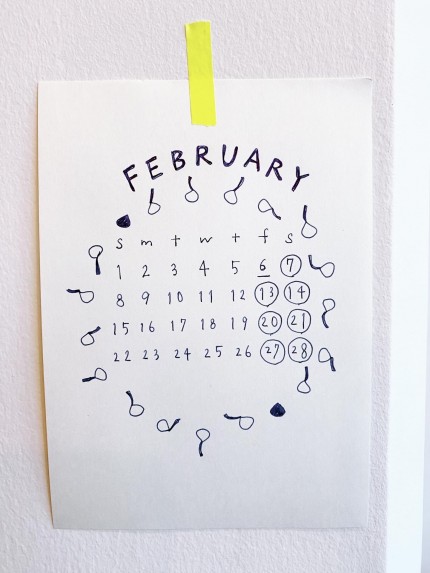 FEBRUARY
s m t w t f s
1 2 3 4 5 6 7
8 9 10 11 12 13 14
15 16 17 18 19 20 21
22 23 24 25 26 27 28